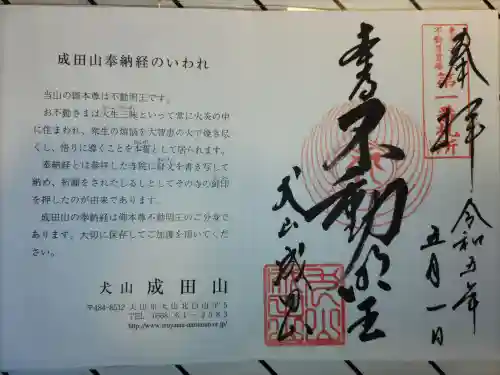 成田山奉納経のいわれ
当山の御本尊は不動明王です。
お不動さまは火生三昧といって常に火炎の中
に住まわれ、衆生の煩悩を大智恵の火で焼き尽
くし、悟りに導くことを本誓として居られます。
奉納経とは参拝した寺院に経文を書き写して
納め、祈願をされたしるしとしてその寺の刻印
を押したのが由来であります。
成田山の奉納経は御本尊不動明王のご分身で
あります。大切に保存してご加護を頂いてくだ
さい。
犬山 成田山
〒484-8512 犬山市犬山北白山平5
TEL 0568 - 61 - 2583
奉拝
令和五年
五月一日
不動明王
犬山成田山